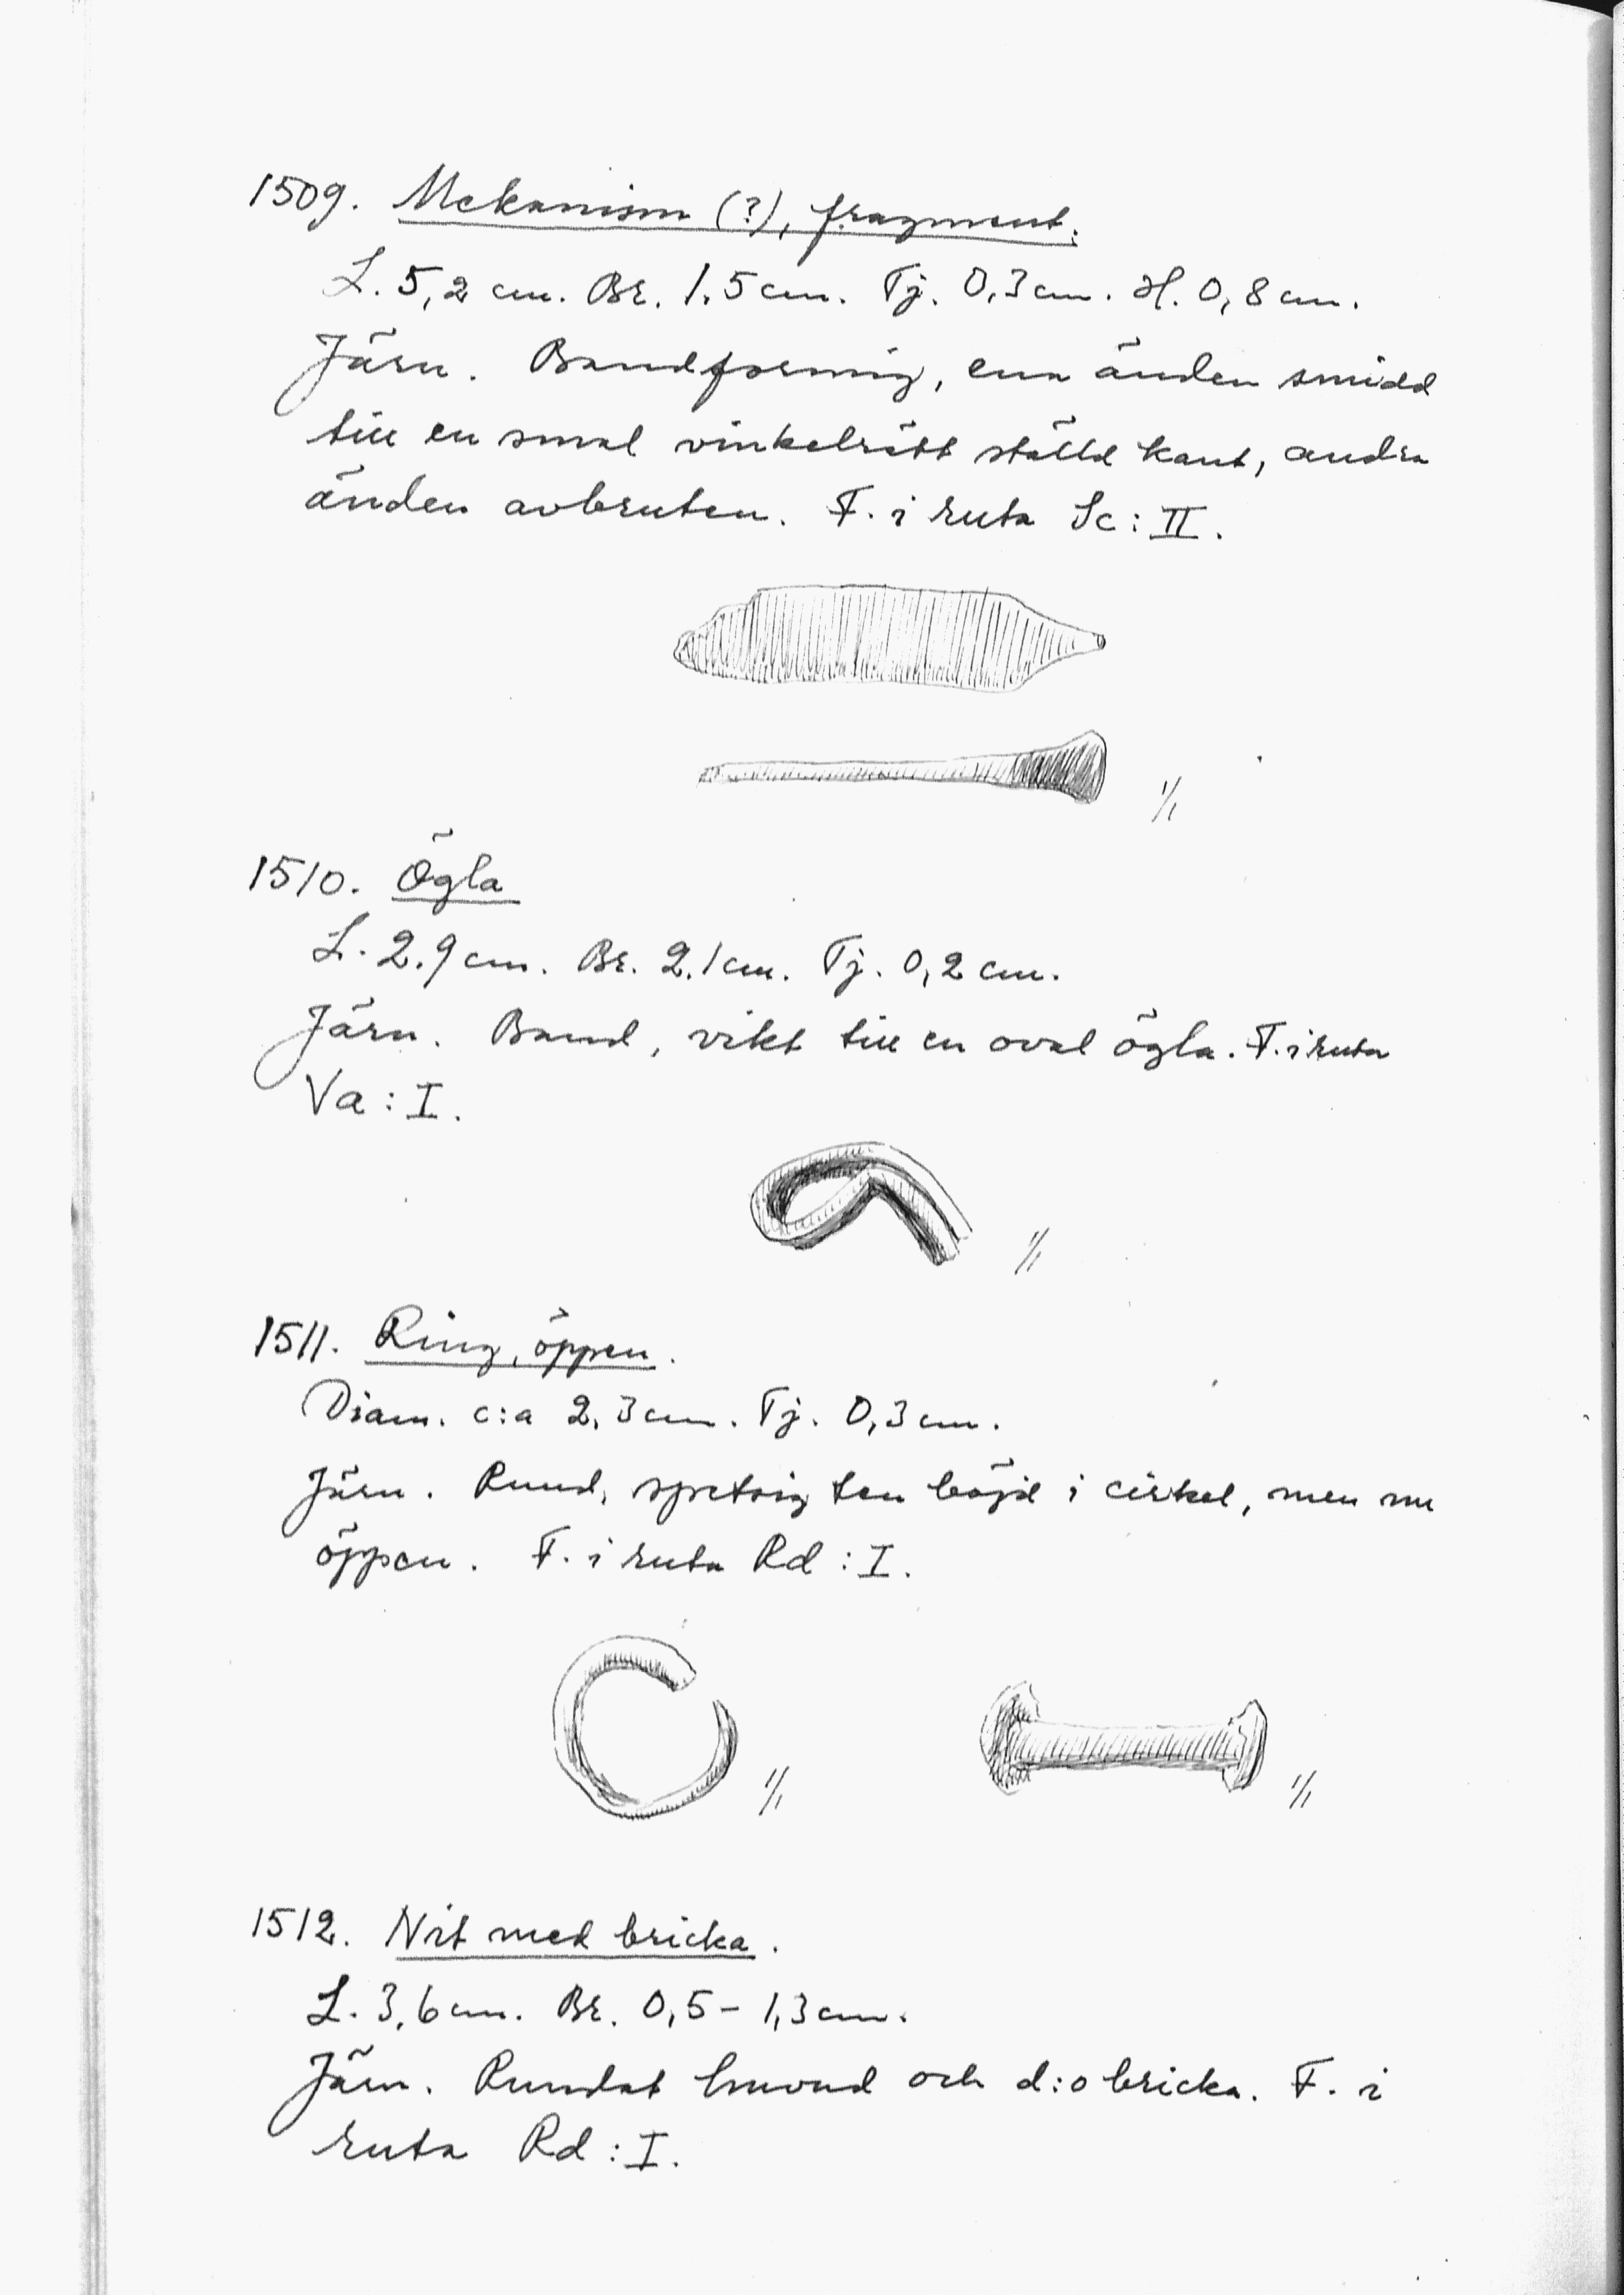 1509. Mekanism (?), fragment.
L. 5,2 cm. Br. 1,5 cm. Tj. 0,3 cm. H. 0,8 cm.
Järn. Bandformig, ena änden smidd
till en smal vinkelrätt ställd kant, andra
änden avbruten. F. i ruta Sc: II.
1/1
1510. Ögla
L. 2,9 cm. Br. 2,1 cm. Tj. 0,2 cm.
Järn. Band, vikt till en oval ögla. F. i ruta
Va: I.
1/1
1511. Ring, öppen.
Diam. c:a 2,3 cm. Tj. 0,3 cm.
Järn. Rund, spetsig ten böjd i cirkel, men nu
öppen. F. i ruta Rd: I.
1/1 1/1
1512. Nit med bricka.
L. 3,6 cm. Br. 0,5 - 1,3 cm.
Järn. Rundat huvud och d:o bricka. F. i
ruta Rd: I.